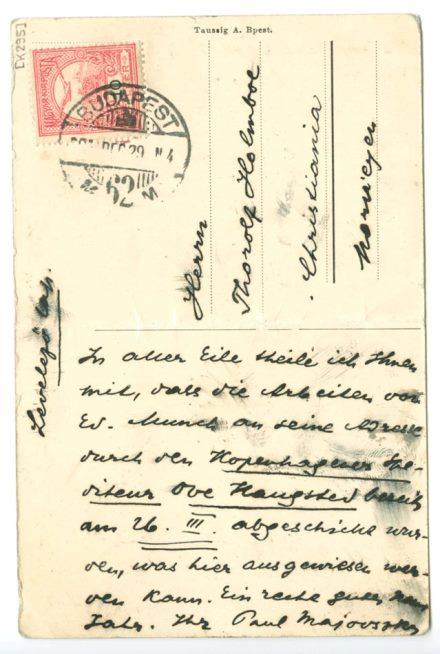 [K295]
Taussig A. Bpest.
MAGYAR KIR. POSTA
BUDAPEST
DEC 29 N4
72
Herrn
Thorolf Holmboe
Christiania
Norwegen
Levelező lap.
In aller Eile theile ich Ihnen
mit, dass die Arbeiten von
Ed. Munch an seine Adresse
durch den Kopenhagener Spe-
diteur Ove Haugsted bereits
am 26. III. abgeschickt wur-
den, was hier ausgewiesen wer-
den kann. Ein recht gutes neues
Jahr. Ihr Paul Majovszky